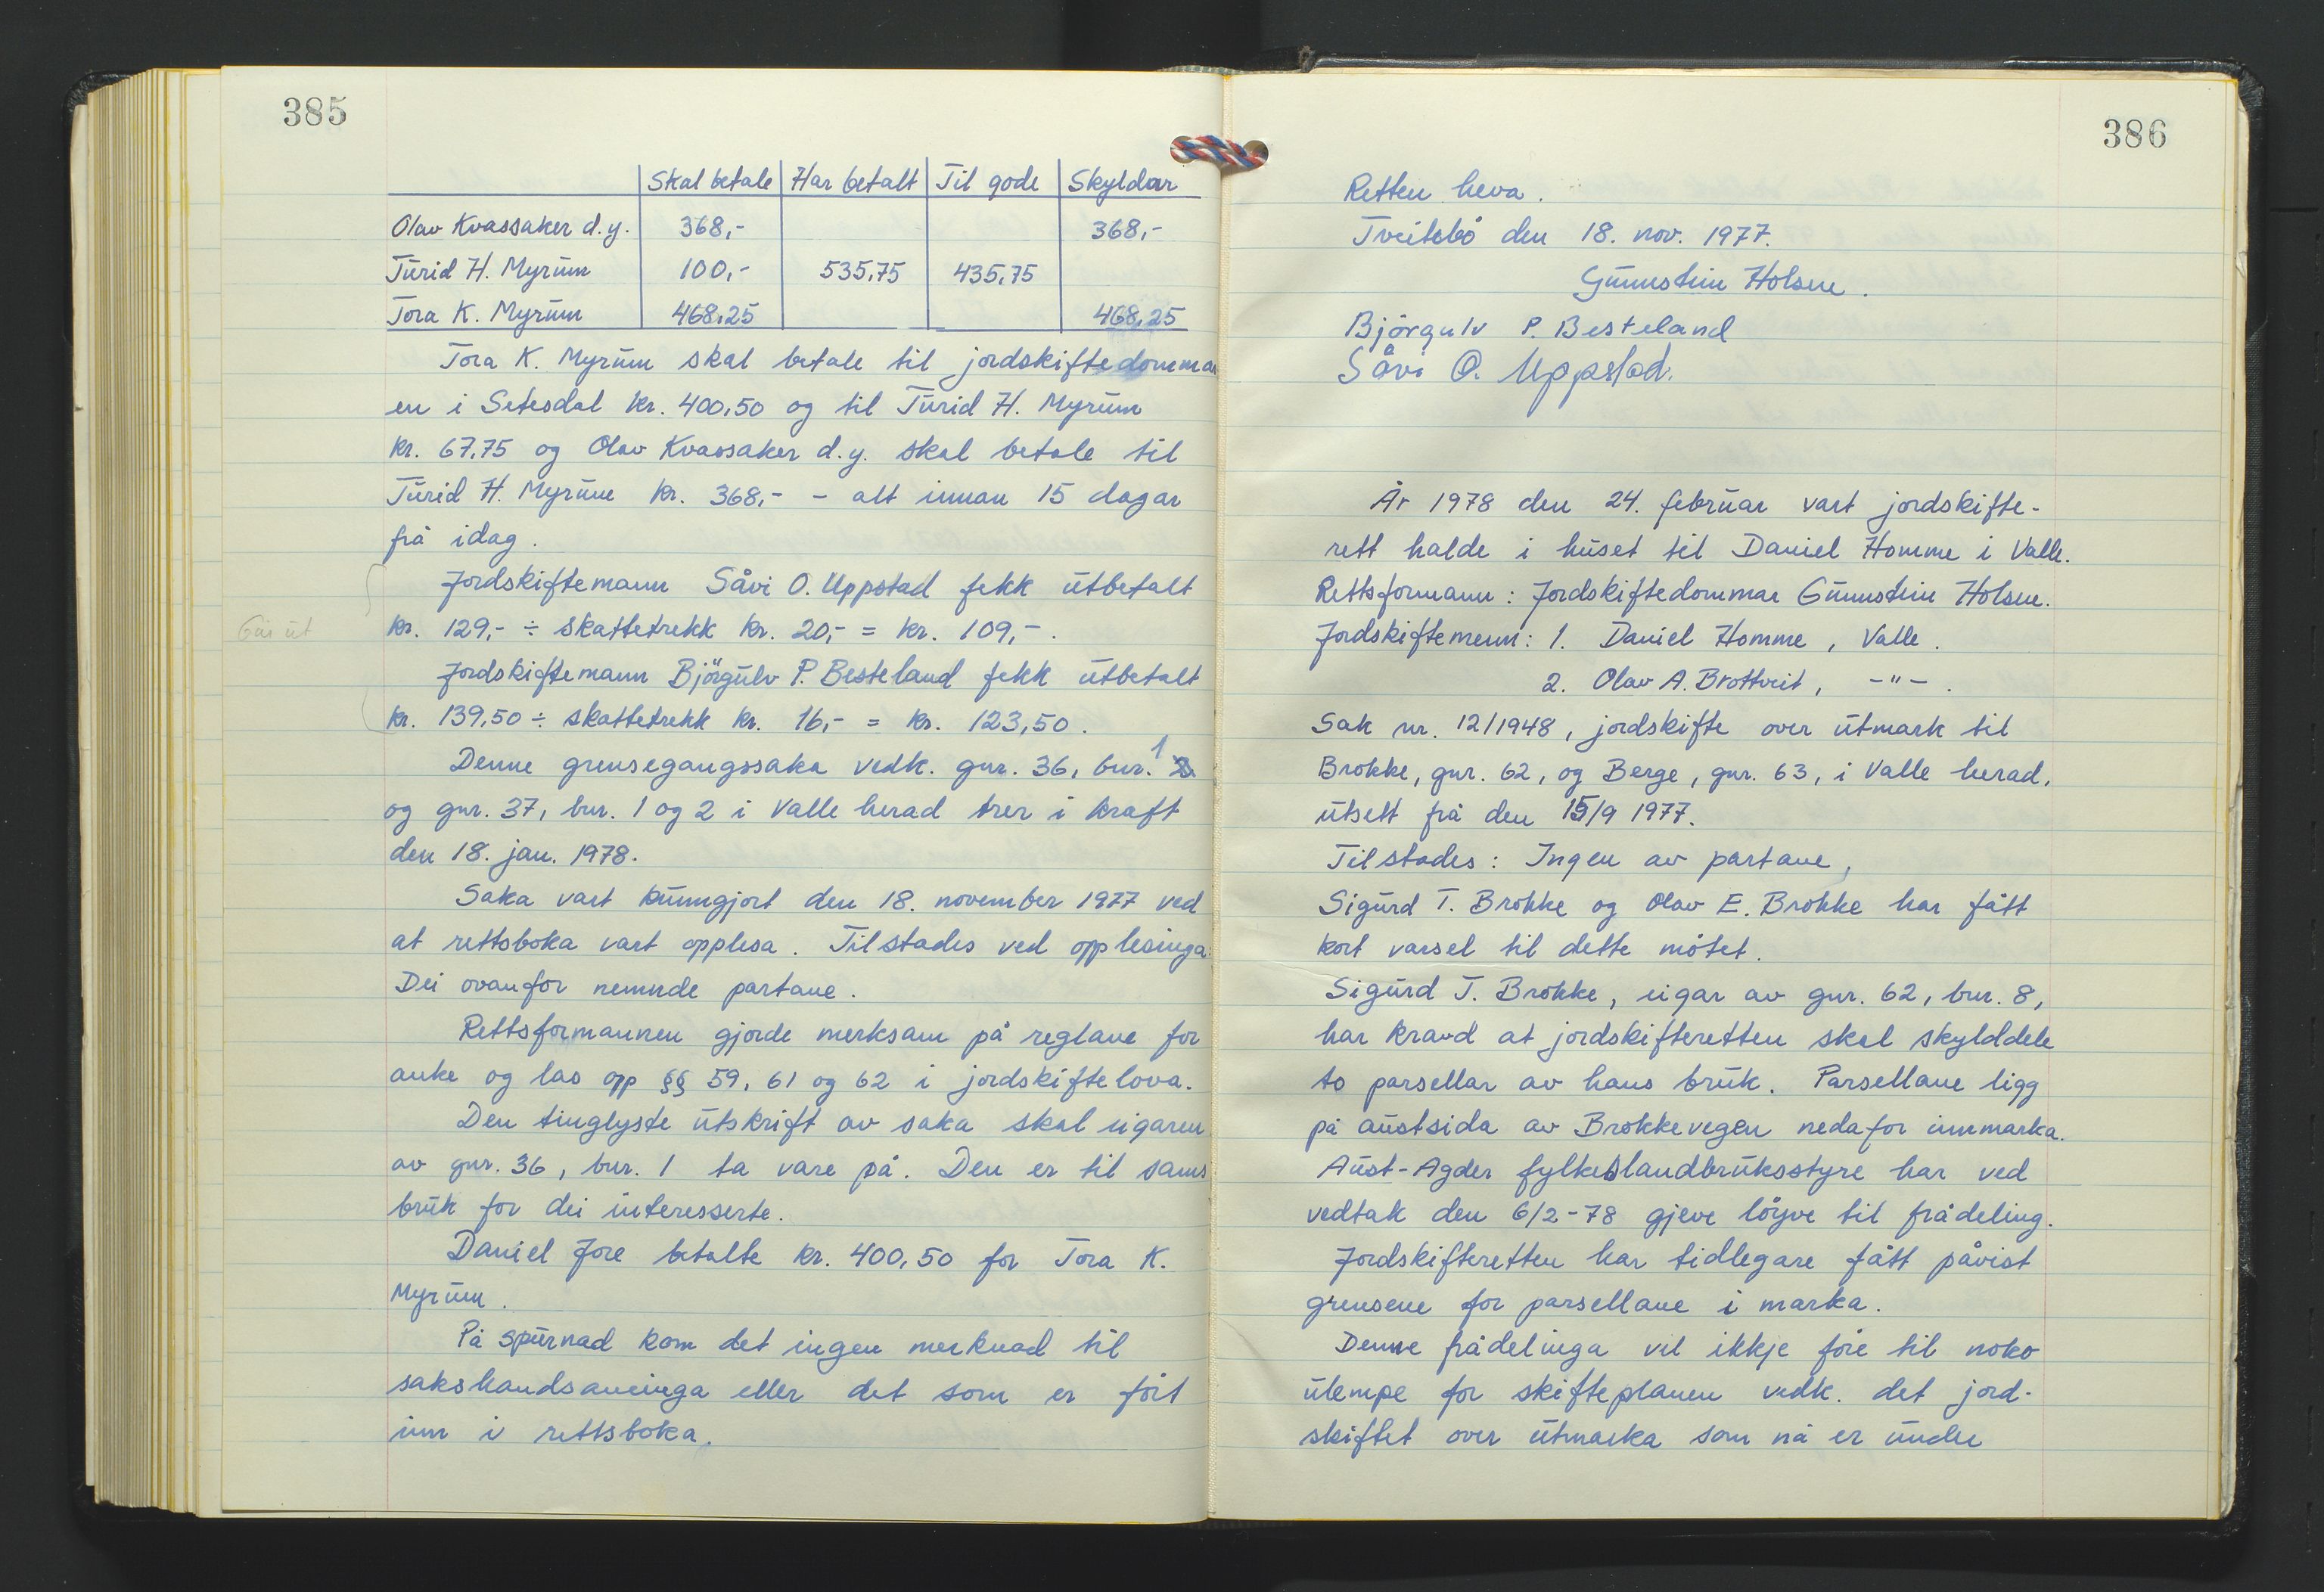 385
Skal betale Har betalt Til gode Skyldar
Olav Kvassaker d.y. 368,- 368,-
Turid H. Myrum 100,- 535,75 435,75
Tora K. Myrum 468,25 468,25
Tora K. Myrum skal betale til jordskiftedommar
en i Setesdal kr. 400,50 og til Turid H. Myrum
kr. 67,75 og Olav Kvassaker d.y. skal betale til
Turid H. Myrum kr. 368,- - alt innan 15 dagar
frå idag.
Jordskiftemann Såvi O. Uppstad fekk utbetalt
Går ut
kr. 129,- ÷ skattetrekk kr. 20,- = kr. 109,-.
Jordskiftemann Björgulv P. Besteland fekk utbetalt
kr. 139,50 ÷ skattetrekk kr. 16,- = kr. 123,50.
Denne grensegangssaka vedk. gnr. 36, bnr. 1
og gnr. 37, bnr. 1 og 2 i Valle herad trer i kraft
den 18. jan. 1978.
Saka vart kunngjort den 18. november 1977 ved
at rettsboka vart opplesa. Tilstades ved opplesinga:
Dei ovanfor nemnde partane.
Rettsformannen gjorde merksam på reglane for
anke og las opp §§ 59, 61 og 62 i jordskiftelova.
Den tinglyste utskrift av saka skal eigaren
av gnr. 36, bnr. 1 ta vare på. Den er til sams
bruk for dei interesserte.
Daniel Jore betalte kr. 400,50 for Tora K.
Myrum.
På spurnad kom det ingen merknad til
sakshandsaminga eller det som er fört
inn i rettsboka.
386
Retten heva.
Tveitebö den 18. nov. 1977.
Gunnstein Holsen.
Björgulv P. Besteland
Såvi O. Uppstad.
År 1978 den 24. februar vart jordskifte-
rett halde i huset til Daniel Homme i Valle.
Rettsformann: Jordskiftedommar Gunnstein Holsen.
Jordskiftemenn: 1. Daniel Homme, Valle.
2. Olav A. Brottveit, -"-.
Sak nr. 12/1948, jordskifte over utmark til
Brokke, gnr. 62, og Berge, gnr. 63, i Valle herad,
utsett frå den 15/9 1977.
Tilstades: Ingen av partane,
Sigurd T. Brokke og Olav E. Brokke har fått
kort varsel til dette mötet.
Sigurd T. Brokke, eigar av gnr. 62, bnr. 8,
har kravd at jordskifteretten skal skylddele
to parsellar av hans bruk. Parsellane ligg
på austsida av Brokkevegen nedafor innmarka.
Aust-Agder fylkeslandbruksstyre har ved
vedtak den 6/2-78 gjeve löyve til frådeling.
Jordskifteretten har tidlegare fått påvist
grensene for parsellane i marka.
Denne frådelinga vil ikkje före til noko
ulempe for skifteplanen vedk. det jord-
skiftet over utmarka som nå er under